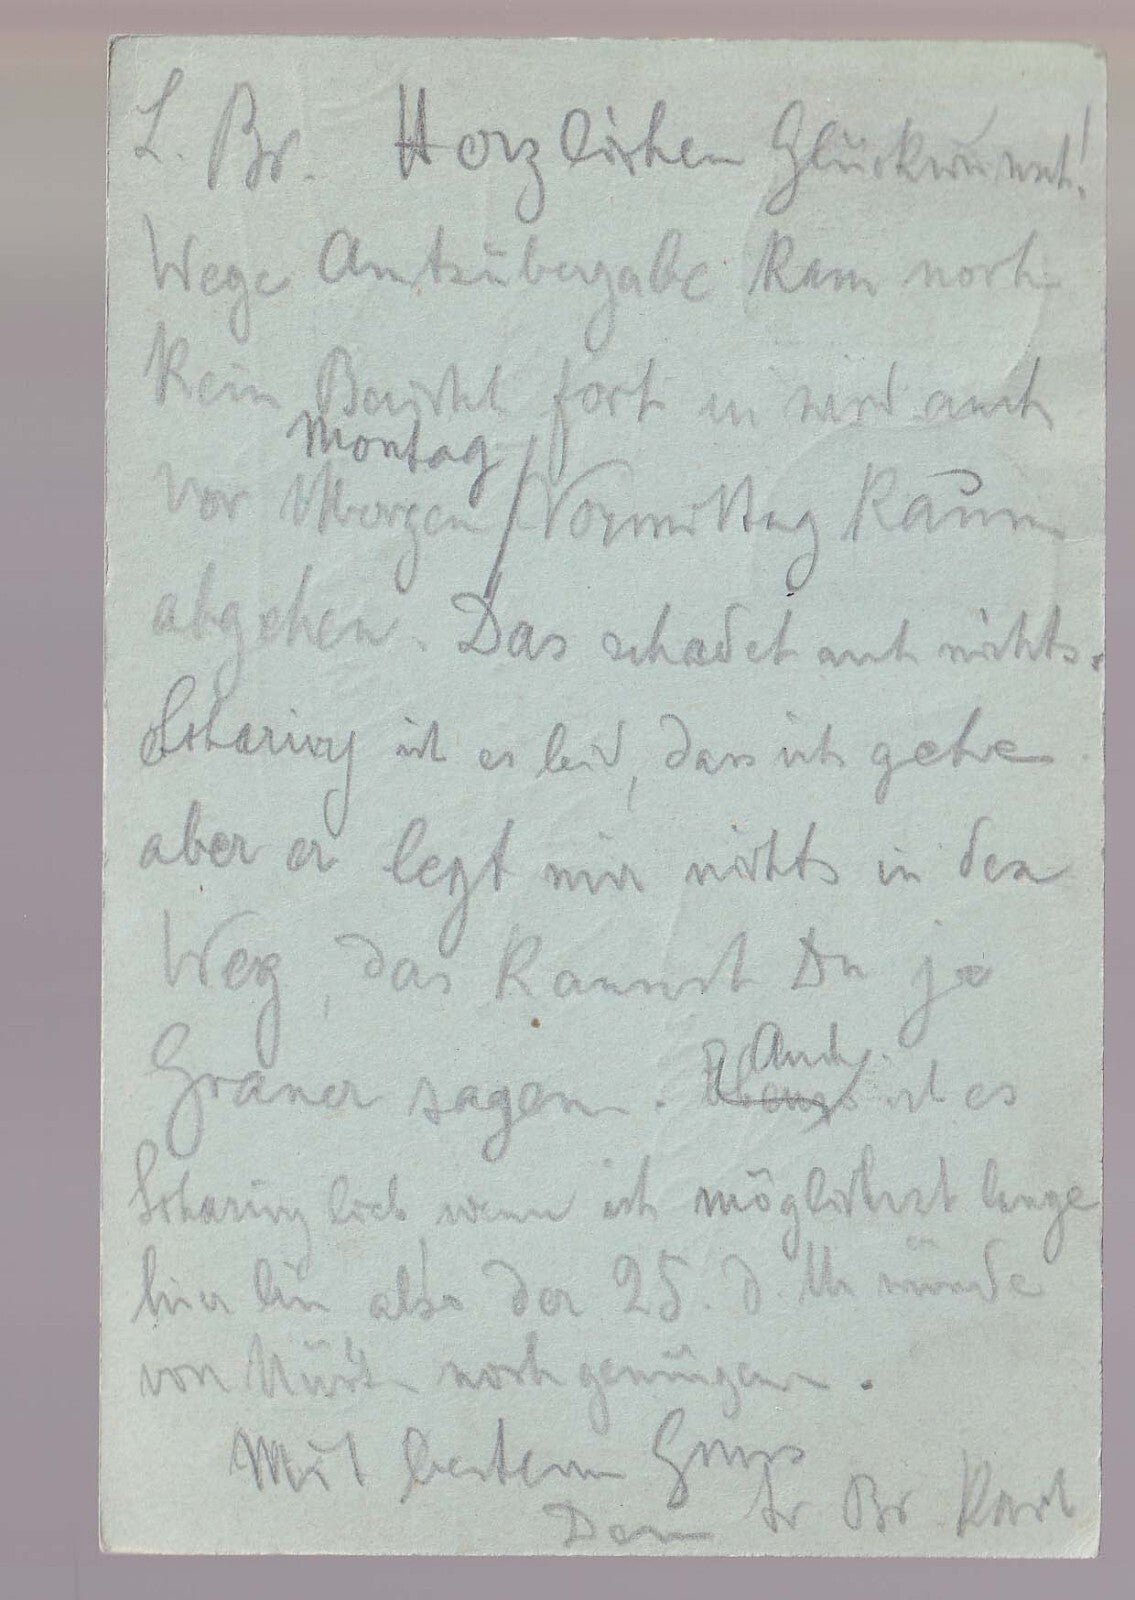 L. Br. Herzlichen Glückwunsch!
Wege Amtsübergabe kam noch
kein Bericht fort u wird auch
Montag
vor Morgen / Vormittag kaum
abgehen. Das schadet auch nichts.
Scharing ist es leid, dass ich gehe
aber er legt mir nichts in den
Weg, das kannst Du ja
Graner sagen.
Auch
ist es
Scharing lieb wenn ich möglichst lange
hier bin also der 25. d. M würde
von noch genügen.
Mit bestem Gruss
Dein Br Karl